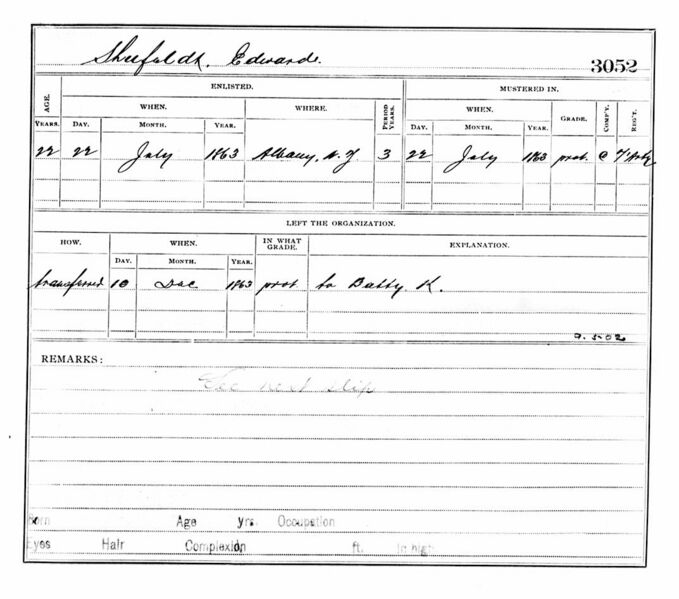 Shufeldt, Edward.
3052
ENLISTED. MUSTERED IN.
AGE. WHEN. WHERE. PERIOD YEARS. WHEN. GRADE. COMP'Y. REG'T.
YEARS. DAY. MONTH. YEAR. DAY. MONTH. YEAR.
22 22 July 1863 Albany, N.Y 3 22 July 1863 prvt. C 7" Arty
LEFT THE ORGANIZATION.
HOW. WHEN. IN WHAT GRADE. EXPLANATION.
DAY. MONTH. YEAR.
transferred 10 Dec 1863 prvt to Batty. K.
9-5-02
REMARKS:
See next slip
Born Age yrs. Occupation
Eyes Hair Complexion ft. in high